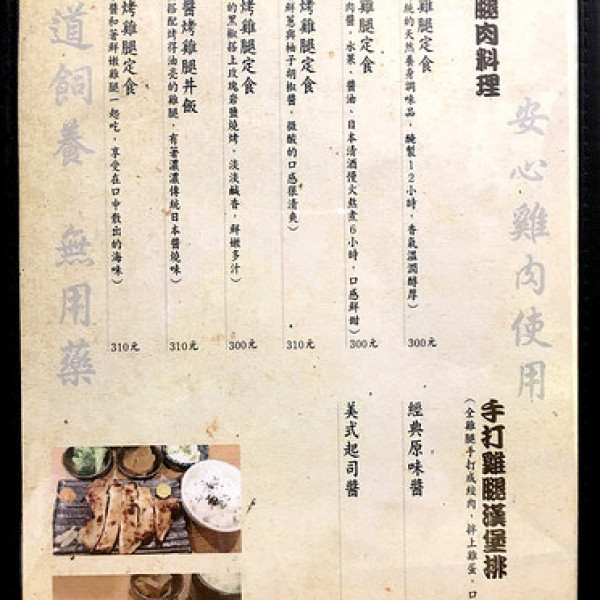 腿肉料理
安心雞肉使用
雞腿定食
統的天然養身調味品，醃製12小時，香氣溫潤醇厚）
300元
雞腿定食
肉醬，水果、醬油、日本清酒慢火熬煮6小時，口感鮮甜）
300元
烤雞腿定食
鮮蔥與柚子胡椒醬，微酸的口感很清爽）
310元
烤雞腿定食
的黑椒搭上玫瑰岩鹽燒烤，淡淡鹹香，鮮嫩多汁）
300元
醬烤雞腿丼飯
搭配烤得油亮的雞腿，有著濃濃傳統日本醬燒味）
310元
烤雞腿定食
醬和著鮮嫩雞腿一起吃，享受在口中散出的海味）
310元
道飼養 無用藥
手打雞腿漢堡排
（全雞腿手打成絞肉，拌上雞蛋，口
經典原味醬
美式起司醬